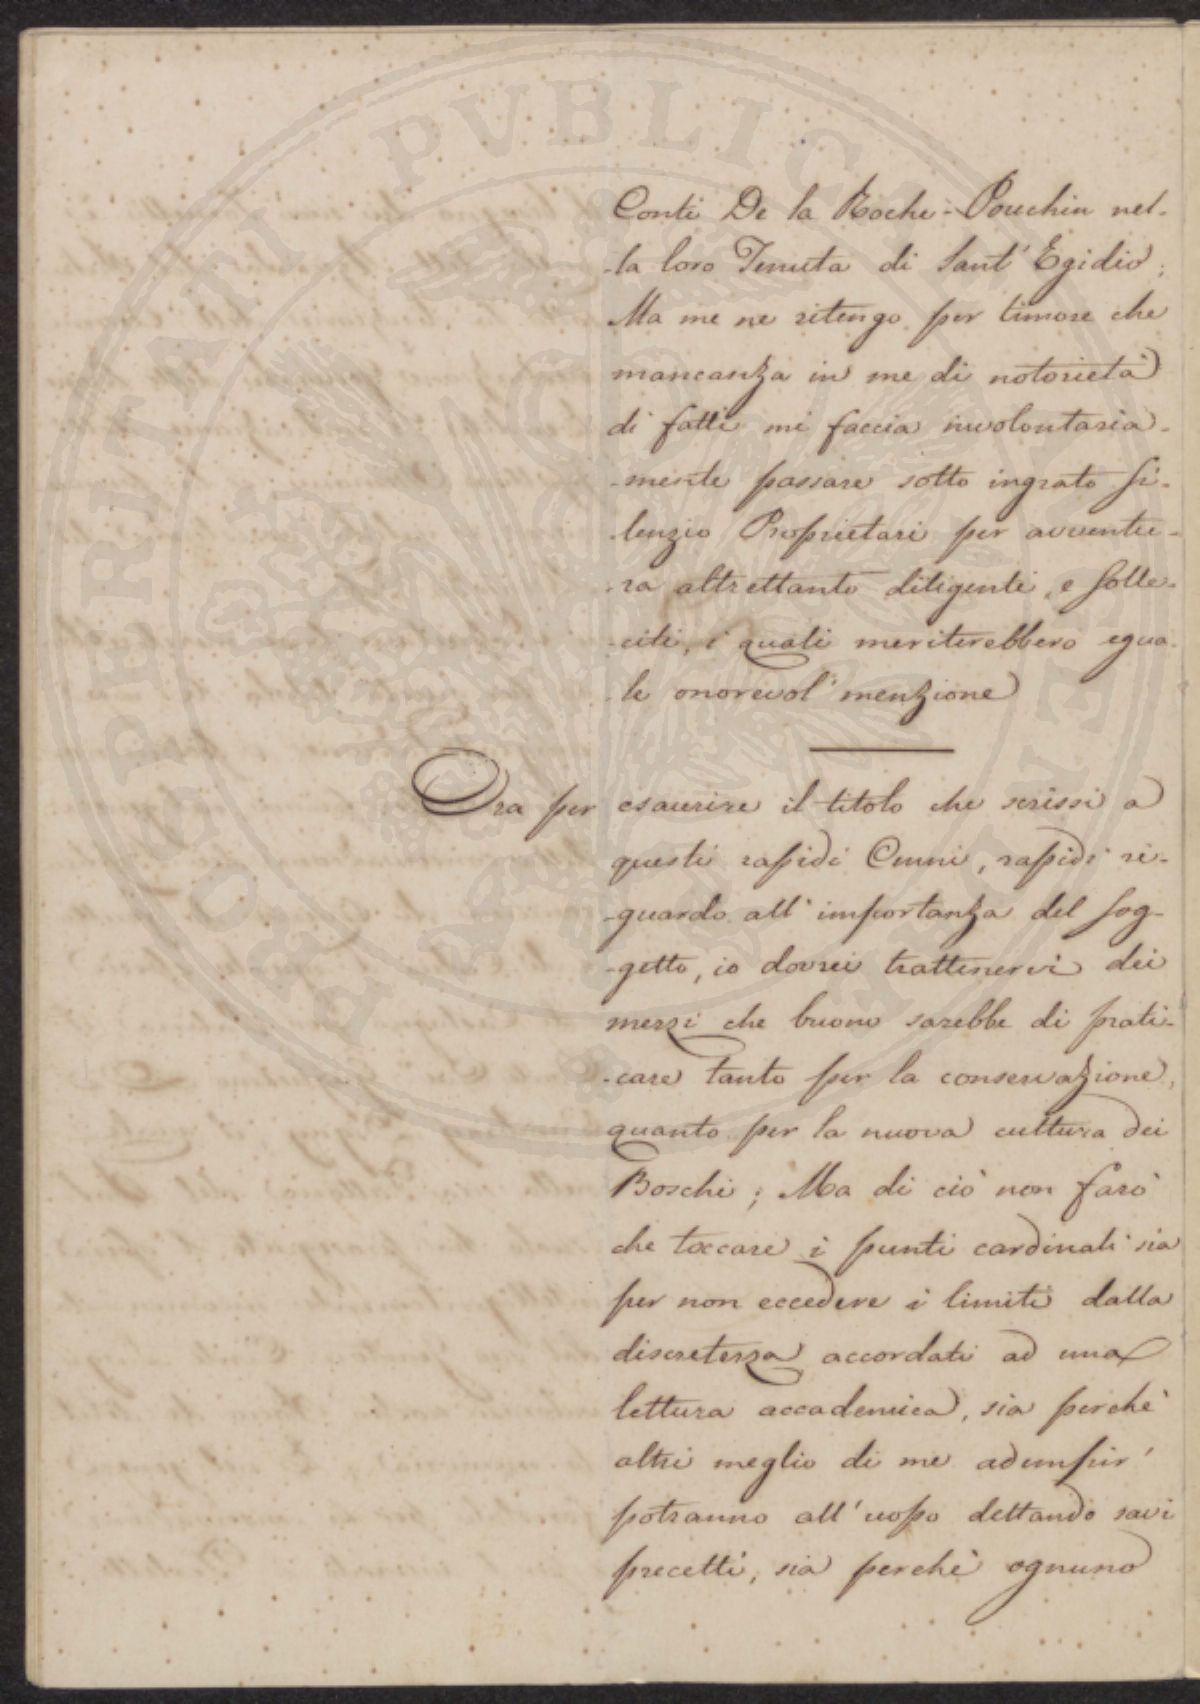 Conti De la Roche-Pouchin nel-
-la loro Tenuta di Sant' Egidio;
Ma me ne ritengo per timore che
mancanza in me di notorietà
di fatti mi faccia involontaria-
-mente passare sotto ingrato si-
-lenzio Proprietari per avventu-
-ra altrettanto diligenti, e solle-
-citi, i quali meriterebbero egua-
-le onorevol' menzione
Ora per esaurire il titolo che scrissi a
questi rapidi Cenni, rapidi ri-
-guardo all' importanza del sog-
-getto, io dovrei trattenervi dei
mezzi che buono sarebbe di prati-
-care tanto per la conservazione,
quanto per la nuova cultura dei
Boschi; Ma di ciò non farò
che toccare i punti cardinali sia
per non eccedere i limiti dalla
discretezza accordati ad una
lettura accademica, sia perchè
altri meglio di me adempir'
potranno all' uopo dettando savi
precetti, sia perchè ognuno
PROSPERITATI PVBLICAE